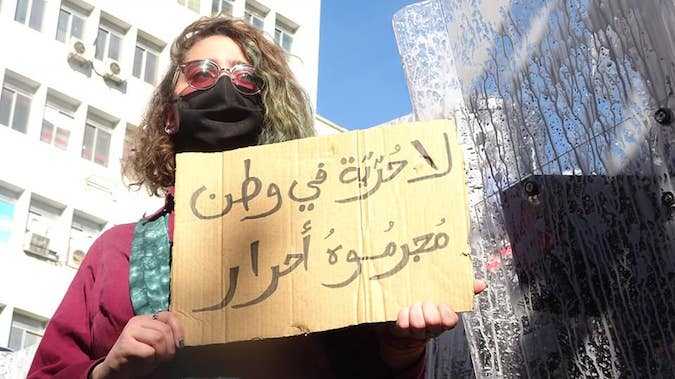 لا حُرّيّة في وطن
مُجرمُوهُ أحرار